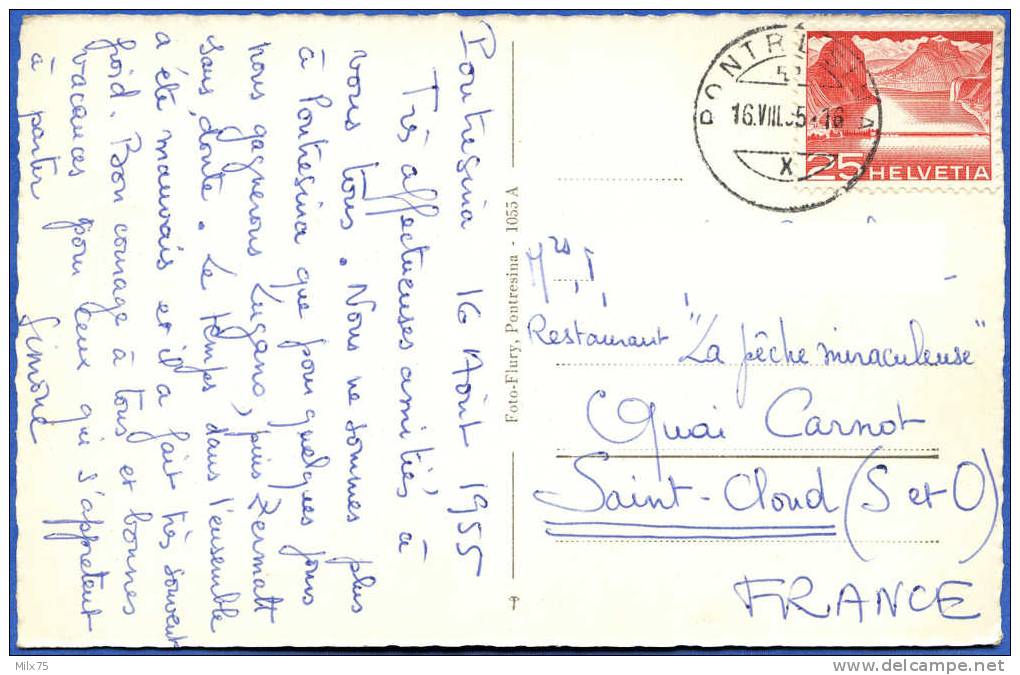 Pontresina 16 Août 1955
Très affectueuses amitiés à
vous tous. Nous ne sommes plus
à Pontresina que pour quelques jours
nous gagnerons Lugano, puis Zermatt
sans doute. Le temps dans l'ensemble
a été mauvais et il a fait très souvent
froid. Bon courage à tous et bonnes
vacances pour ceux qui s'apprêtent
à partir
Simone
Foto-Flury, Pontresina - 1055 A
PONTRESINA
16.VIII.55-16
X
25 HELVETIA
Restaurant "La pêche miraculeuse"
Quai Carnot
Saint-Cloud (S et O)
FRANCE
Milx75
delcampe.net